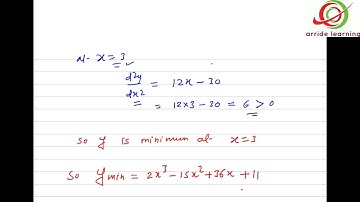 arride learning
at x = 3
d²y/dx² = 12x - 30
= 12×3 - 30 = 6 > 0
so y is minimum at x=3
so y min = 2x³ - 15x² + 36x + 11